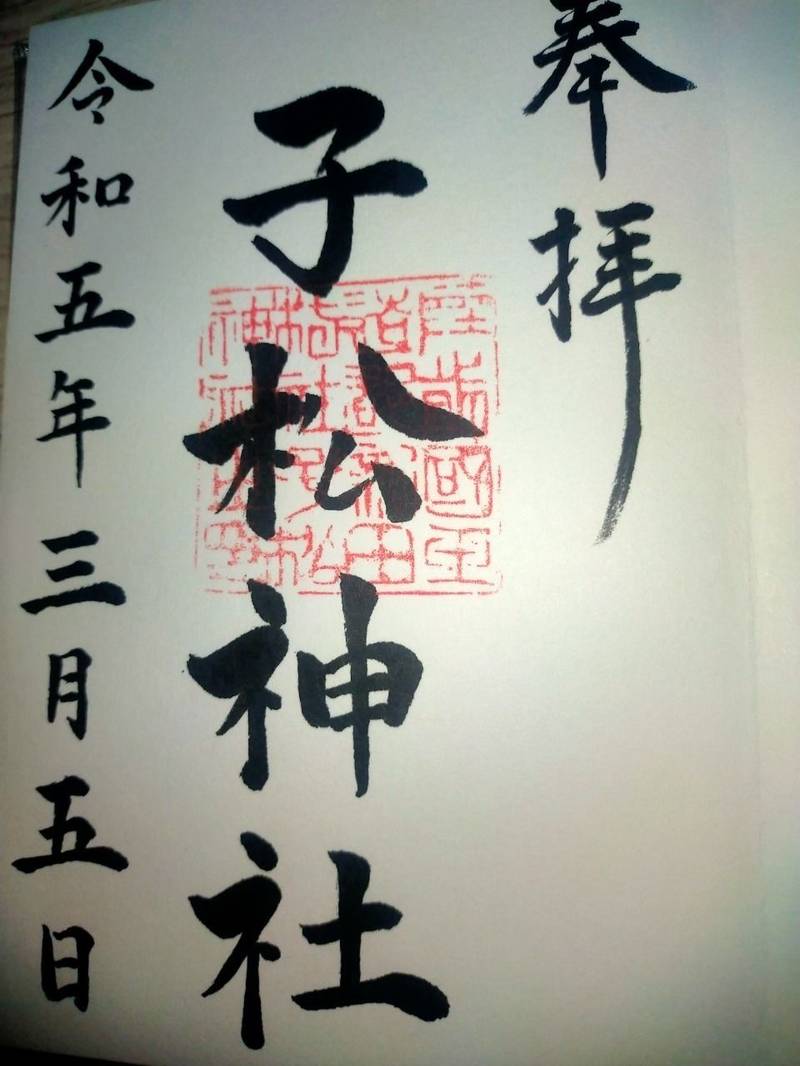 奉拝
子松神社
令和五年三月五日